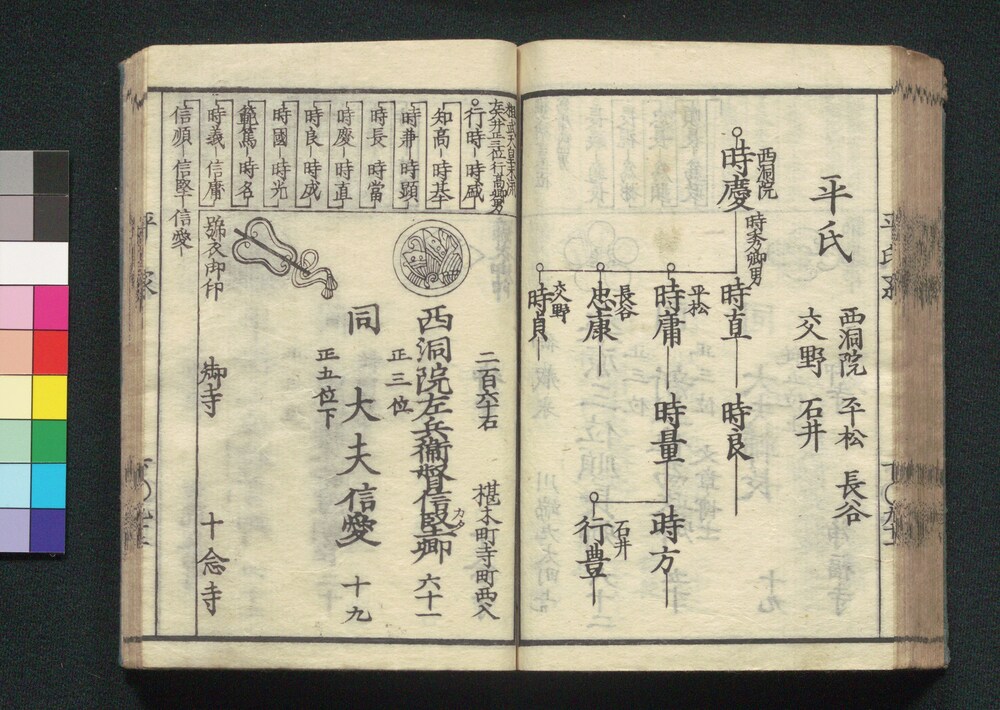 平氏
西洞院 平松 長谷
交野 石井
西洞院
時慶
時秀卿男
時直 時良
平松
時庸 時量 時方
石井
行豊
長谷
忠康
交野
時貞
桓武天皇末流
安井正三位行高卿男
行時 時盛
知高 時基
時兼 時顕
時長 時當
時慶 時直
時良 時成
時國 時光
範篤 時名
時義 信庸
信順 信堅 信愛
二百六十石 椹木町寺町西入
西洞院左兵衛督信堅卿 六十一
カタ
正三位
同 大夫信愛 十九
正五位下
御印
御寺 十念寺
平家